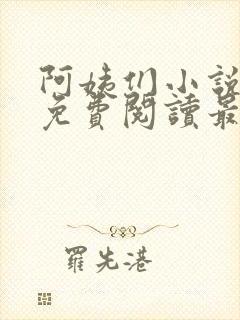 阿姨们小說
免費閱讀最
羅先港